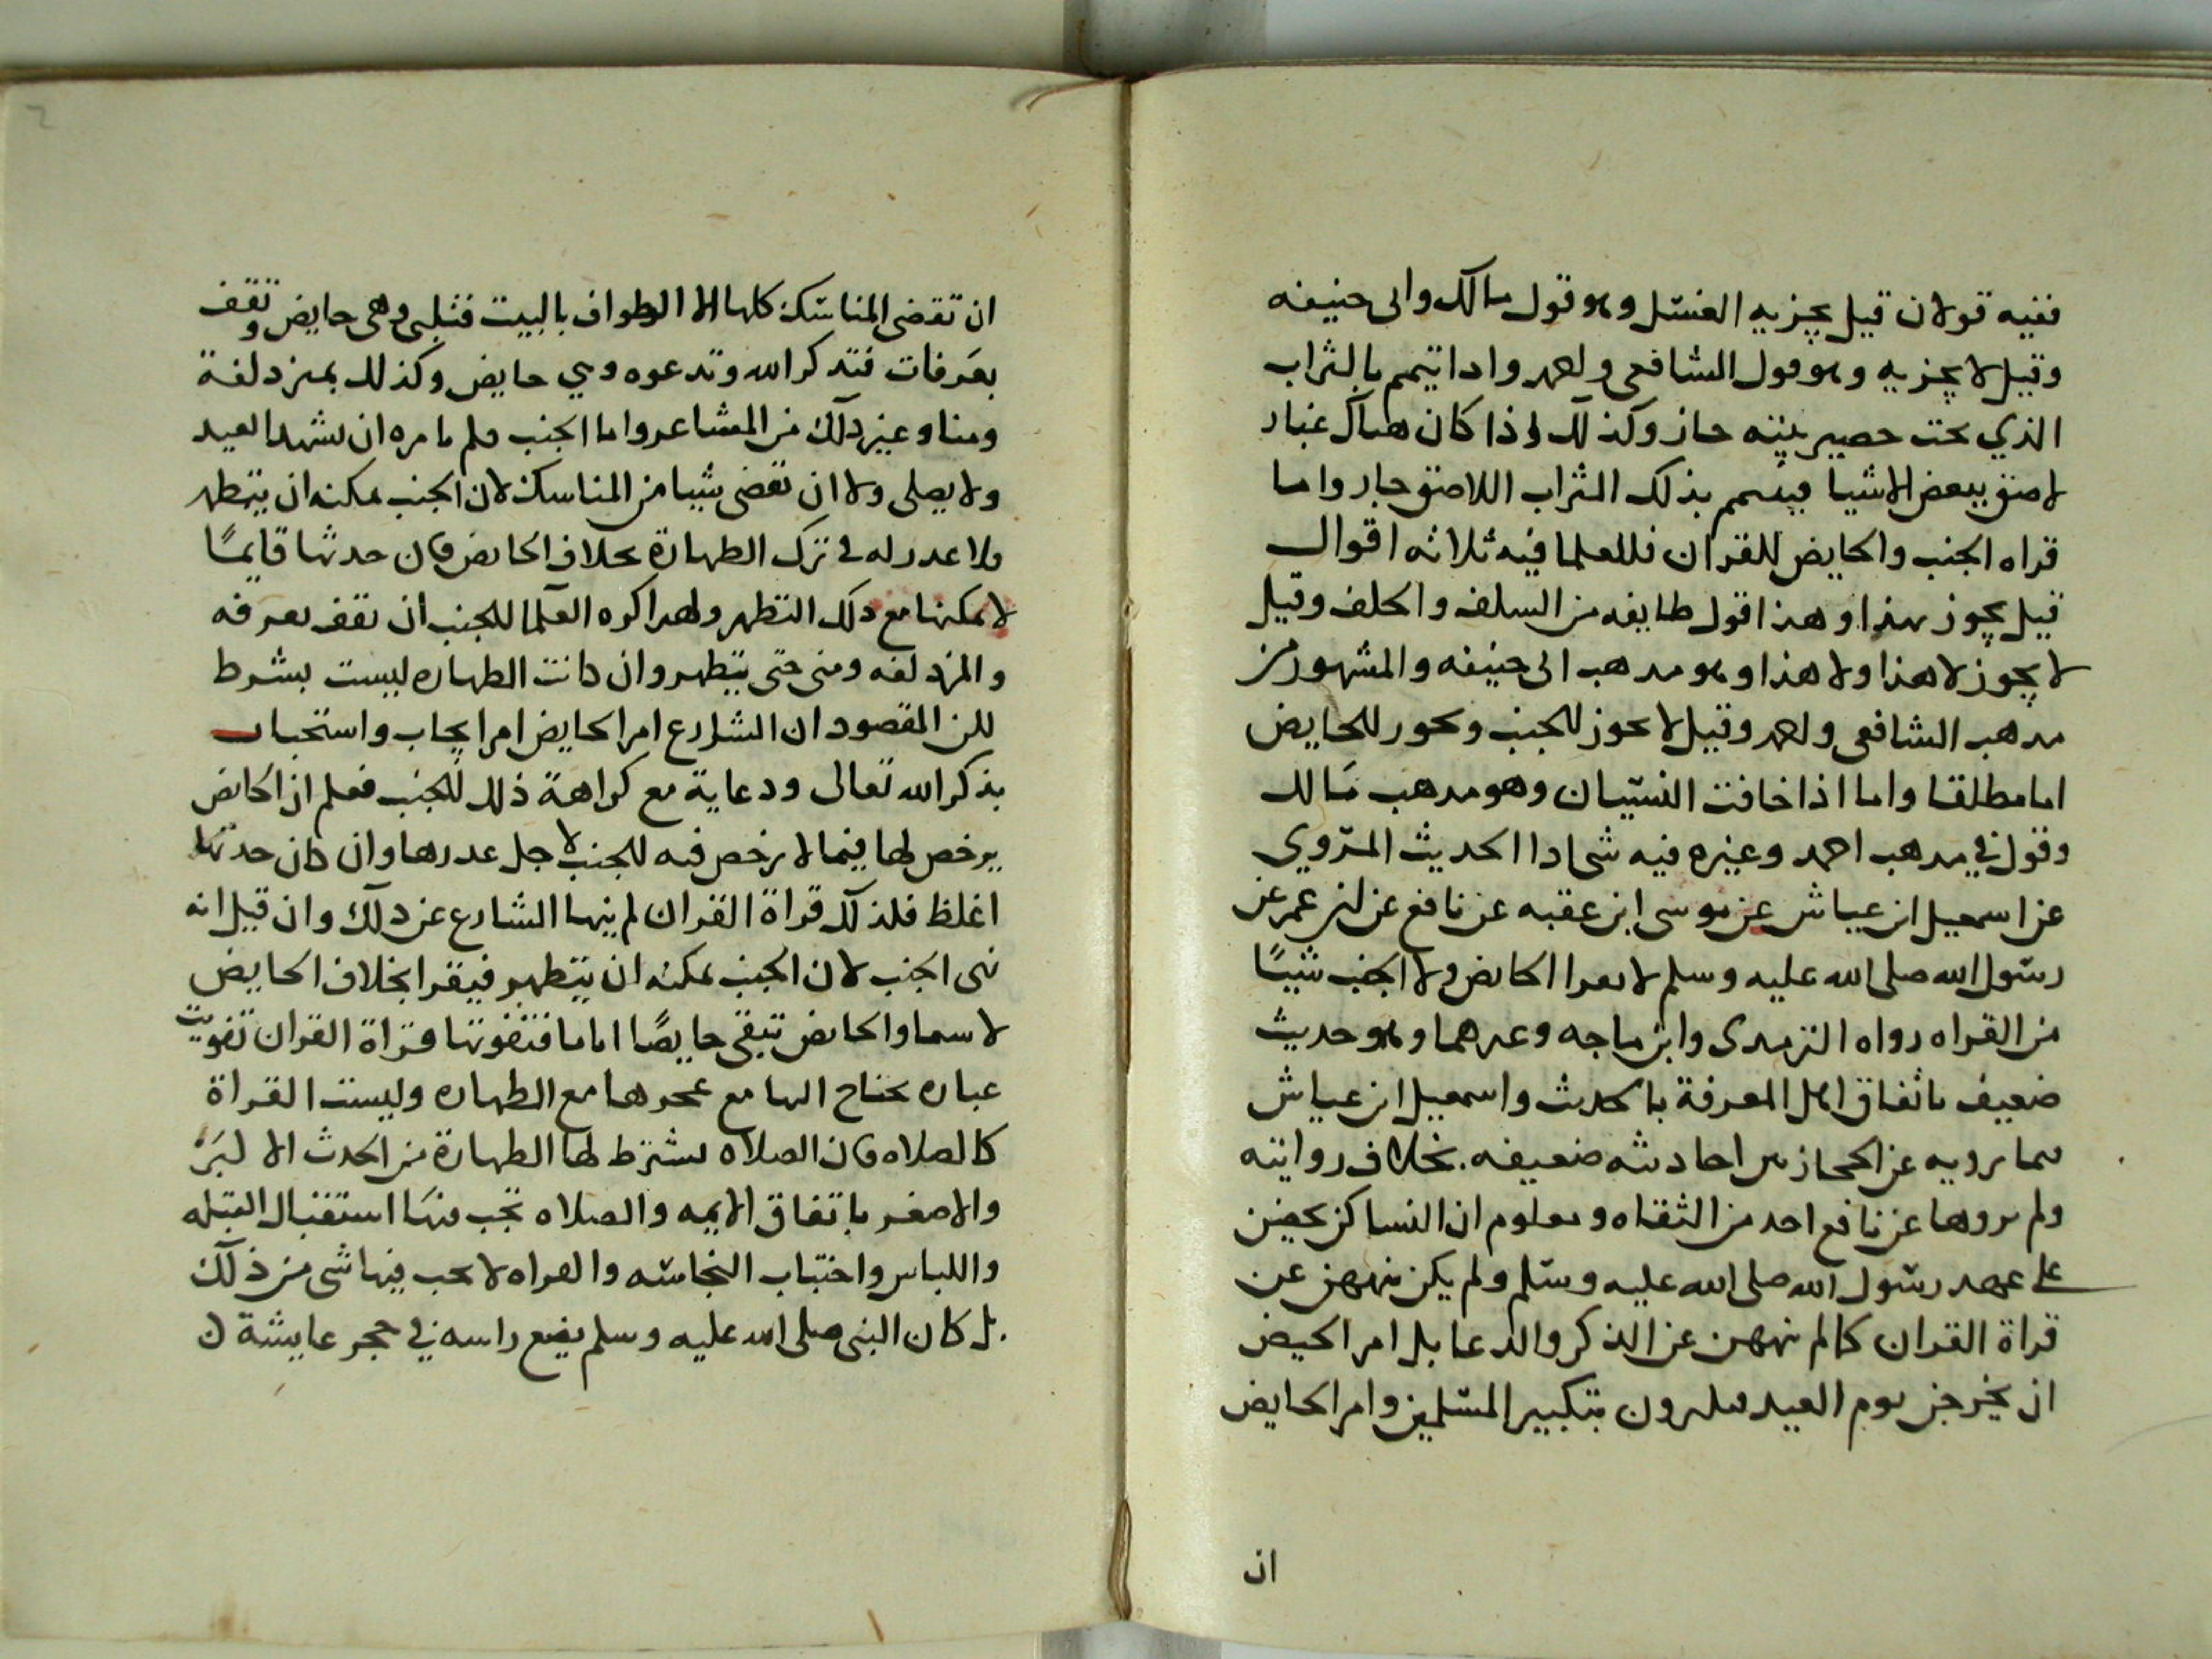 ففيه قولان قيل يجزيه الغسل وهو قول مالك وابى حنيفه
وقيل لا يجزيه وهو قول الشافعى واحمد واذا تيمم بالتراب
الذي تحت حصير بيته جاز وكذلك اذا كان هناك غبار
لاصق ببعض الاشيا فيتيمم بذلك التراب اللاصق جاز واما
قراه الجنب والحايض للقران فللعلما فيه ثلاثه اقوال
قيل يجوز لهذا وهذا قول طايفه من السلف والخلف وقيل
لا يجوز لا هذا ولا هذا وهو مدهب ابى حنيفه والمشهور من
مدهب الشافعى واحمد وقيل لا يجوز للجنب ويجوز للحايض
اما مطلقا واما اذا خافت النسيان وهو مدهب مالك
وقول في مدهب احمد وغيره فيه شى اذا الحديث المروي
عن اسمعيل ابن عياش عن موسى ابن عقبه عن نافع عن ابن عمر عن
رسول الله صلى الله عليه وسلم لا يقرا الحايض ولا الجنب شيئا
من القراه رواه الترمدى وابن ماجه وغيرهما وهو حديث
ضعيف باتفاق اهل المعرفة بالحديث واسمعيل ابن عياش
بما يرويه عن الحجازيين احاديثه ضعيفه بخلاف روايته
ولم يروها عن نافع احد من الثقاه ومعلوم ان النسا كن يحضن
على عهد رسول الله صلى الله عليه وسلم ولم يكن ينههن عن
قراة القران كما لم ينههن عن الذكر والدعا بل امر الحيض
ان يخرجن يوم العيد فيكبرون بتكبير المسلمين وامر الحايض
ان
ان تقضى المناسك كلها الا الطواف بالبيت فتلبى وهى حايض وتقف
بعرفات فتدكر الله وتدعوه وهي حايض وكذلك بمزدلفة
ومنا وغير دلك من المشاعر واما الجنب فلم يامره ان يشهد العيد
ولا يصلى ولا ان يقضى شيا من المناسك لان الجنب يمكنه ان يتطهر
ولا عدر له فى ترك الطهارة بخلاف الحايض فان حدثها قايما
لا يمكنها مع دلك التطهر ولهدا كره العلما للجنب ان يقف بعرفه
والمزدلفه ومنى حتى يتطهر وان كانت الطهاره ليست بشرط
لكن المقصود ان الشارع امر الحايض امر ايجاب واستحباب
بذكر الله تعالى ودعايه مع كراهة ذلك للجنب فعلم ان الحايض
يرخص لها فيما لا يرخص فيه للجنب لاجل عدرها وان كان حدثها
اغلظ فلذلك قراة القران لم ينهها الشارع عن دلك وان قيل انه
نهى الجنب لان الجنب يمكنه ان يتطهر فيقرا بخلاف الحايض
لاسيما والحايض تبقى حايضا اياما فتفوتها قراة القران تفويت
عباده تحتاج اليها مع عجزها مع الطهاره وليست القراة
كالصلاه فان الصلاه يشترط لها الطهارة من الحدث الاكبر
والاصغر باتفاق الايمه والصلاه تجب فيها استقبال القبله
واللباس واجتناب النجاسه والقراه لا يجب فيها شى من ذلك
بل كان النبى صلى الله عليه وسلم يضع راسه في حجر عايشة